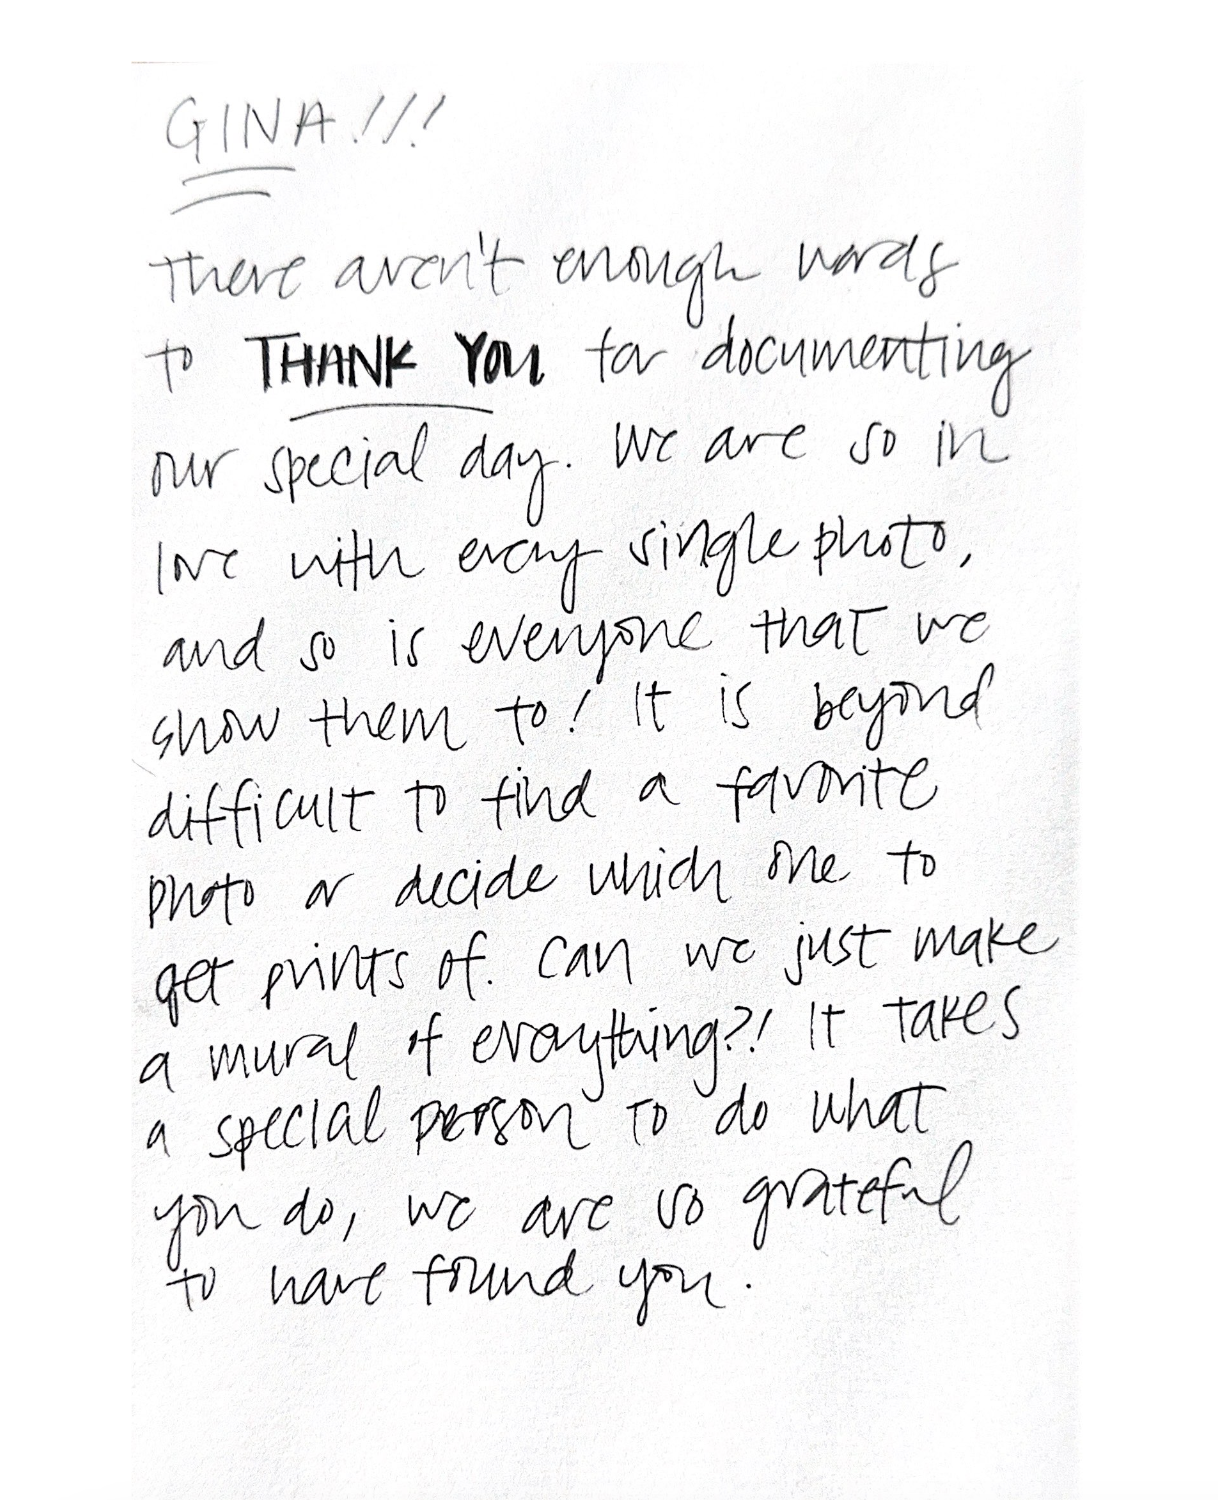 GINA!!!
There aren't enough words
to THANK YOU for documenting
our special day. We are so in
love with every single photo,
and so is everyone that we
show them to! It is beyond
difficult to find a favorite
photo or decide which one to
get prints of. Can we just make
a mural of everything?! It takes
a special person to do what
you do, we are so grateful
to have found you.